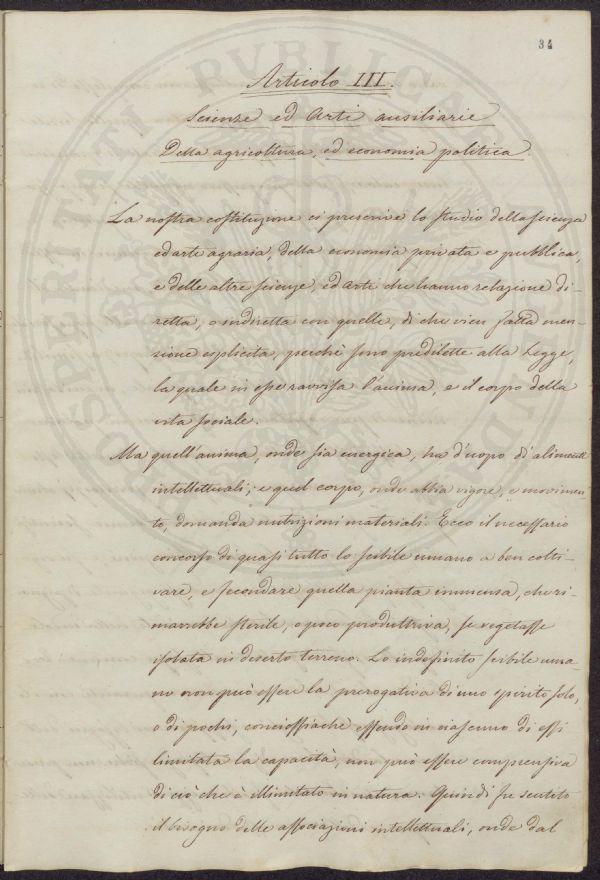 34
Articolo III.
Scienze ed Arti ausiliarie
Della agricoltura, ed economia politica
La nostra costituzione ci prescrive lo studio della scienza
ed arte agraria, della economia privata e pubblica,
e delle altre scienze, ed arti che hanno relazione di-
retta, o indiretta con quelle, di che vien fatta men-
zione esplicita, perchè sono predilette alla Legge,
la quale in esse ravvisa l'anima, e il corpo della
vita sociale.
Ma quell'anima, onde sia energica, ha d'uopo di alimenti
intellettuali; e quel corpo, onde abbia vigore, e movimen-
to, domanda nutrizioni materiali. Ecco il necessario
concorso di quasi tutto lo scibile umano a ben colti-
vare, e fecondare quella pianta immensa, che ri-
marrebbe sterile, o poco produttiva, se vegetasse
isolata in deserto terreno. Lo indefinito scibile uma-
no non può essere la prerogativa di uno spirito solo,
o di pochi, conciossiachè essendo in ciascuno di essi
limitata la capacità, non può essere comprensiva
di ciò che è illimitato in natura. Quindi fu sentito
il bisogno delle associazioni intellettuali, onde dal
PROSPERITATI PVBLICAE